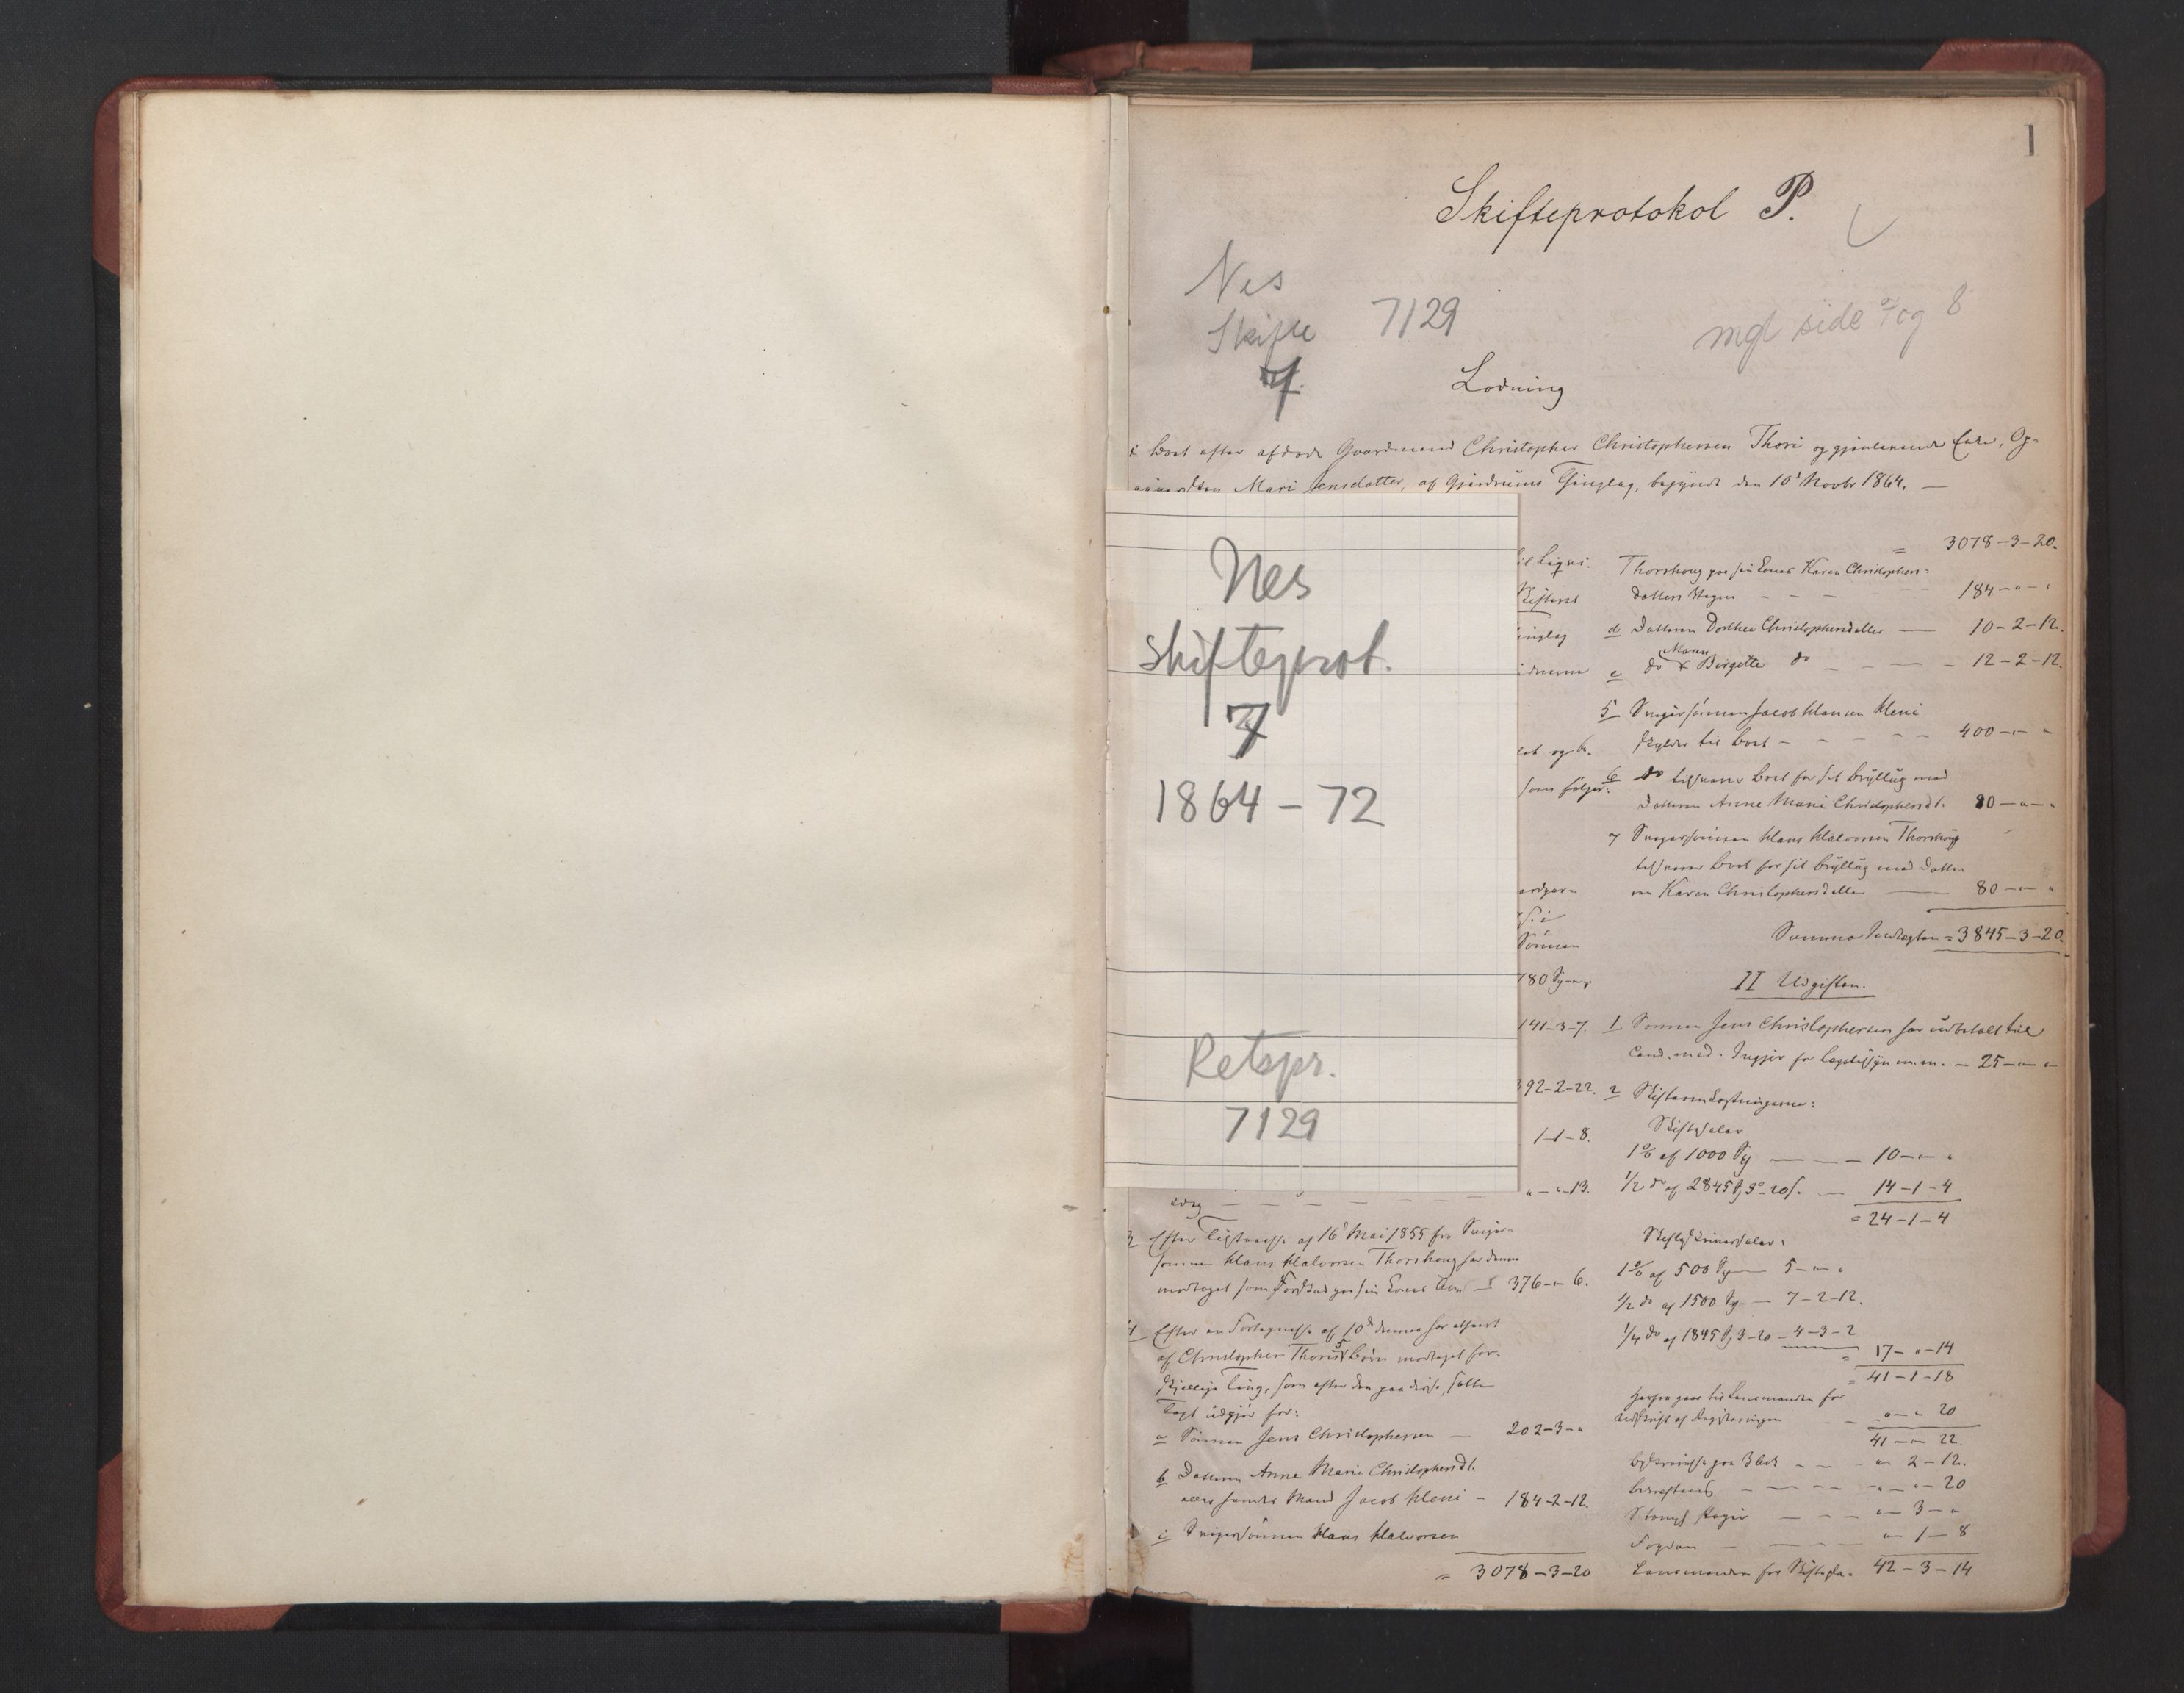 1
Skifteprotokol P.
Nes
Skifte 7129
7
mgl side 7 og 8
Lodning
i Boet efter afdøde Gaardmand Christopher Christophersen Thori og gjenlevende Enke, Op-
Mari Jensdatter, af Gjerdrums Thinglag, begyndt den 10de Novbr 1864. —
Nes
skifteprot.
7
1864 – 72
Retspr.
7129
lat og be-
som følger:
Sønnen
780 Spd
141-3-7.
392-2-22.
1-1-8.
" - " - 13.
3 Efter Tilstaaelse af 16de Mai 1855 fra Sviger-
sønnen Hans Halvorsen Thorshoug har denne
modtaget som Forskud paa sin Kones Arv 376 - " - 6.
4 Efter en Fortegnelse af 10de dennes har
af Christopher Thoris 5 Børn modtaget for-
skjellige Ting, som efter den paa disse satte
Taxt udgjør for:
a Sønnen Jens Christophersen — 202-3-"
b Datteren Anne Marie Christophersdt.
eller hendes Mand Jacob Kleni - 184-2-12.
c Svigersønnen Hans Halvorsen
= 3078-3-20
= 3078-3-20.
Thorshoug paa sin Kones Karen Christophers-
datters Vegne - - - 184 - " - "
d Datteren Dorthea Christophersdatter — 10-2-12.
e do Maren Birgitte do - - - 12-2-12.
5 Svigersønnen Jacob Hansen Kleni
skylder til Boet - - - 400 - " - "
6 do tilsvarer Boet for sit Bryllup med
Datteren Anne Marie Christophersdt. 80 - " - "
7 Svigersønnen Hans Halvorsen Thorshoug
tilsvarer Boet for sit Bryllup med Datte-
ren Karen Christophersdatter — 80 - " - "
Summa Indtægten = 3845-3-20.
II Udgiften.
1 Sønnen Jens Christophersen har udbetalt til
Cand. med. for Lægetilsyn m. m. - 25 - " - "
2 Skifteomkostningerne:
Skiftesalær
1 % af 1000 Spd — 10 - " - "
1/2 do af 2845 Spd 3 - 20 s. — 14-1-4
= 24-1-4
1 % af 500 Spd — 5 - " - "
1/2 do af 1500 Spd — 7-2-12.
1/4 do af 1845 Spd 3-20 - 4-3-2
= 17 - " - 14
= 41-1-18
Herfra gaar til Lensmanden for
Udskrift af Registeringen - " - " 20
41 - " - 22.
Beskrivelse paa 3 Ark - - " 2-12.
- - - " - " - 20
Stemplet Papir - - - " - 3 - "
Fogden - - - " 1 - 8
Lensmanden for 42-3-14